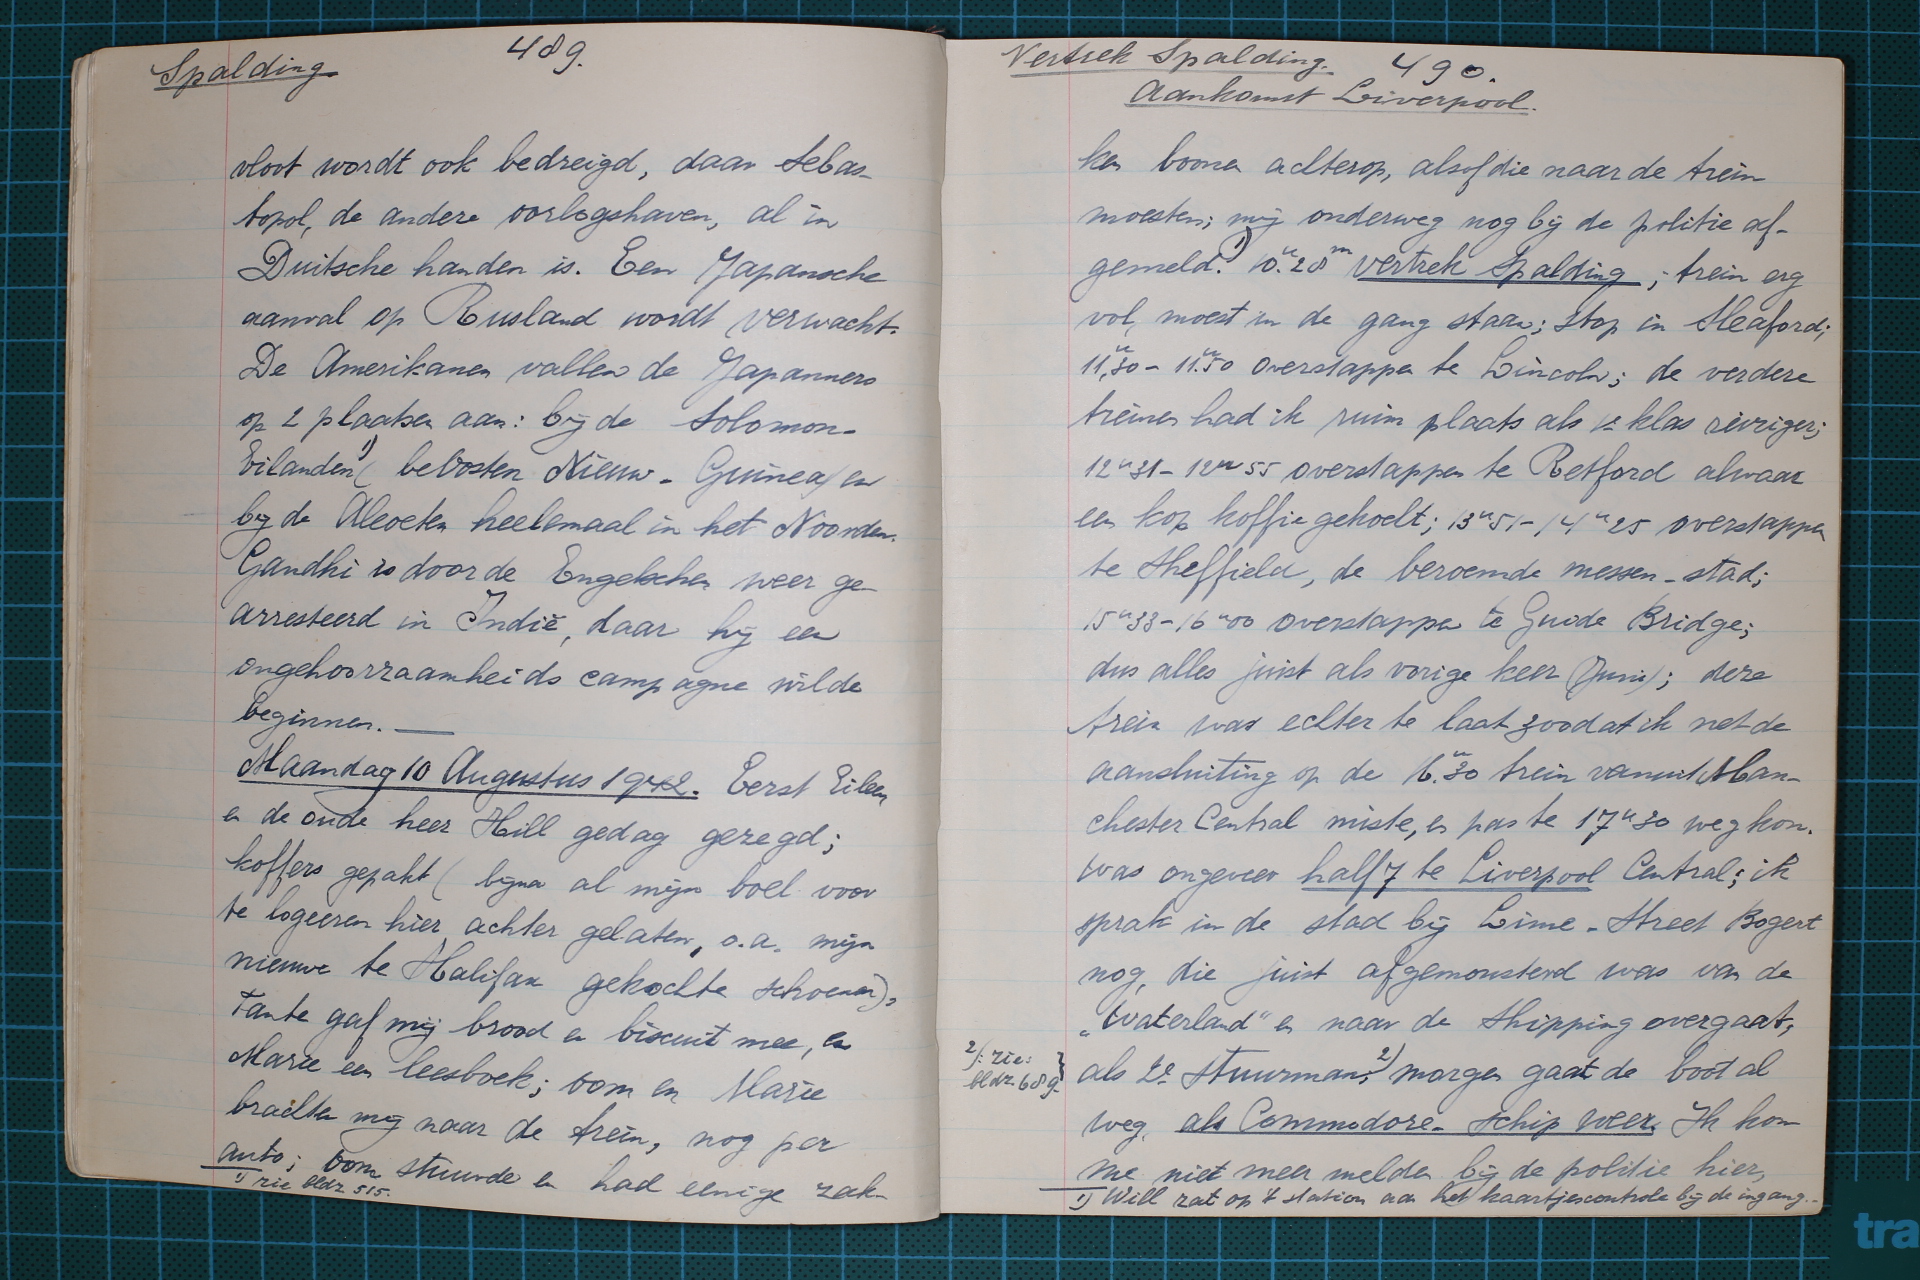 Spalding 489.
vloot wordt ook bedreigd, daar Sebas-
topol, de andere oorlogshaven, al in
Duitsche handen is. Een Japansche
aanval op Rusland wordt verwacht.
De Amerikanen vallen de Japanners
op 2 plaatsen aan: bij de Solomon-
Eilanden 1) (beoosten Nieuw-Guinea) en
bij de Aleoeten heelemaal in het Noorden.
Gandhi is door de Engelschen weer ge-
arresteerd in Indië, daar hij een
ongehoorzaamheids campagne wilde
beginnen. —
Maandag 10 Augustus 1942. Eerst Eileen
en de oude heer Hill gedag gezegd;
koffers gepakt (bijna al mijn boel voor
te logeeren hier achter gelaten, o.a. mijn
nieuwe te Halifax gekochte schoenen),
Tante gaf mij brood en biscuit mee, en
Marie een leesboek; oom en Marie
brachten mij naar de trein, nog per
auto; oom stuurde en had eenige zak-
1) zie bldz 515.
Vertrek Spalding. 490.
Aankomst Liverpool.
ken boonen achterop, alsof die naar de trein
moesten; mij onderweg nog bij de politie af-
gemeld. 1) 10.u 28m vertrek Spalding; trein erg
vol, moest in de gang staan; stop in Sleaford;
11,u30 - 11.u50 overstappen te Lincoln; de verdere
treinen had ik ruim plaats als 1e klas reiziger;
12u31 - 12u55 overstappen te Retford alwaar
een kop koffie gehoelt; 13u51 - 14u25 overstappen
te Sheffield, de beroemde messen-stad;
15u33 - 16u00 overstappen te Guide Bridge;
dus alles juist als vorige keer (Juni); deze
trein was echter te laat zoodat ik net de
aansluiting op de 16.u30 trein vanuit Man-
chester Central miste, en pas te 17u30 weg kon.
was ongeveer half 7 te Liverpool Central; ik
sprak in de stad bij Lime-Street Bogert
nog, die juist afgemonsterd was van de
„Waterland" en naar de Shipping overgaat,
2) zie: bldz 689 } als 2e Stuurman; 2) morgen gaat de boot al
weg, als Commodore-schip weer. Ik kon
me niet meer melden bij de politie hier,
1) Will zat op 't station aan het kaartjescontrole bij de ingang.
tra